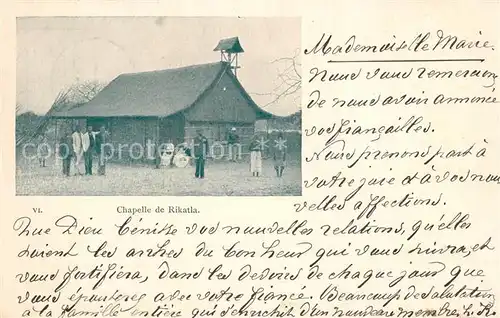 Mademoiselle Marie.
Nous vous remercions
de nous avoir annoncé
vos fiançailles.
Nous prenons part à
votre joie et à vos nou-
velles affections.
VI. Chapelle de Rikatla.
Que Dieu bénisse vos nouvelles relations, qu'elles
soient les arches du bonheur qui vous suivra, et
vous fortifiera, dans les devoirs de chaque jour que
vous avec votre fiancé. Beaucoup de salutations
à la famille entière qui s'enrichit d'un nouveau membre